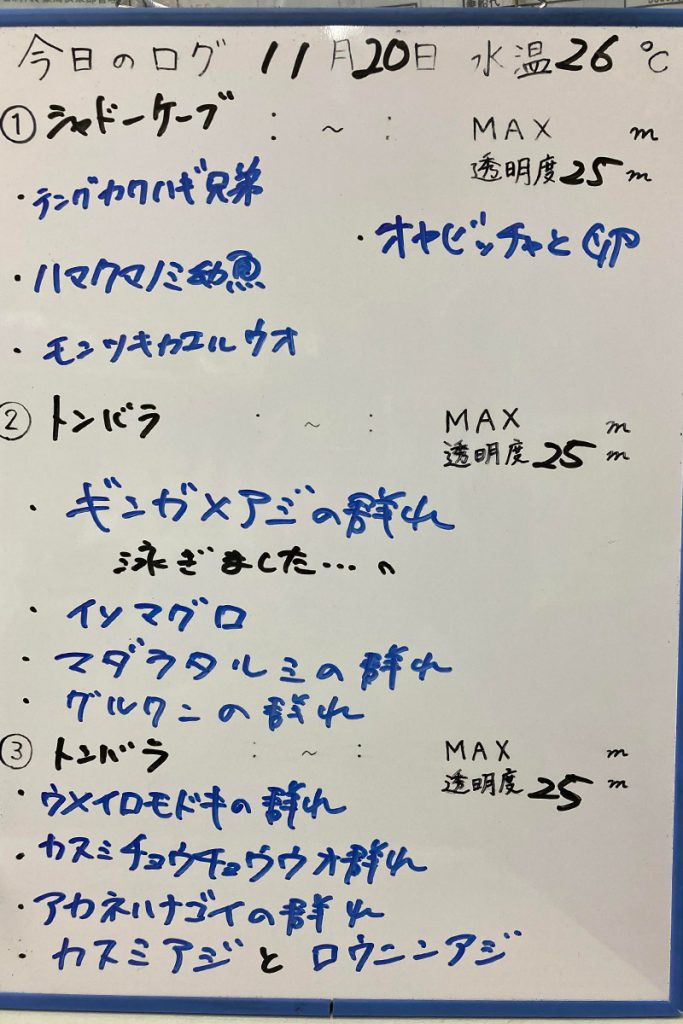 今日のログ 11月20日 水温26℃
① シャドーケーブ : ~ : MAX m
透明度25m
・テングカワハギ兄弟
・オヤビッチャと卵
・ハマクマノミ幼魚
・モンツキカエルウオ
② トンバラ : ~ : MAX m
透明度25m
・ギンガメアジの群れ
泳ぎました…
・イソマグロ
・マダラタルミの群れ
・グルクンの群れ
③ トンバラ : ~ : MAX m
透明度25m
・ウメイロモドキの群れ
・カスミチョウチョウウオ群れ
・アカネハナゴイの群れ
・カスミアジとロウニンアジ